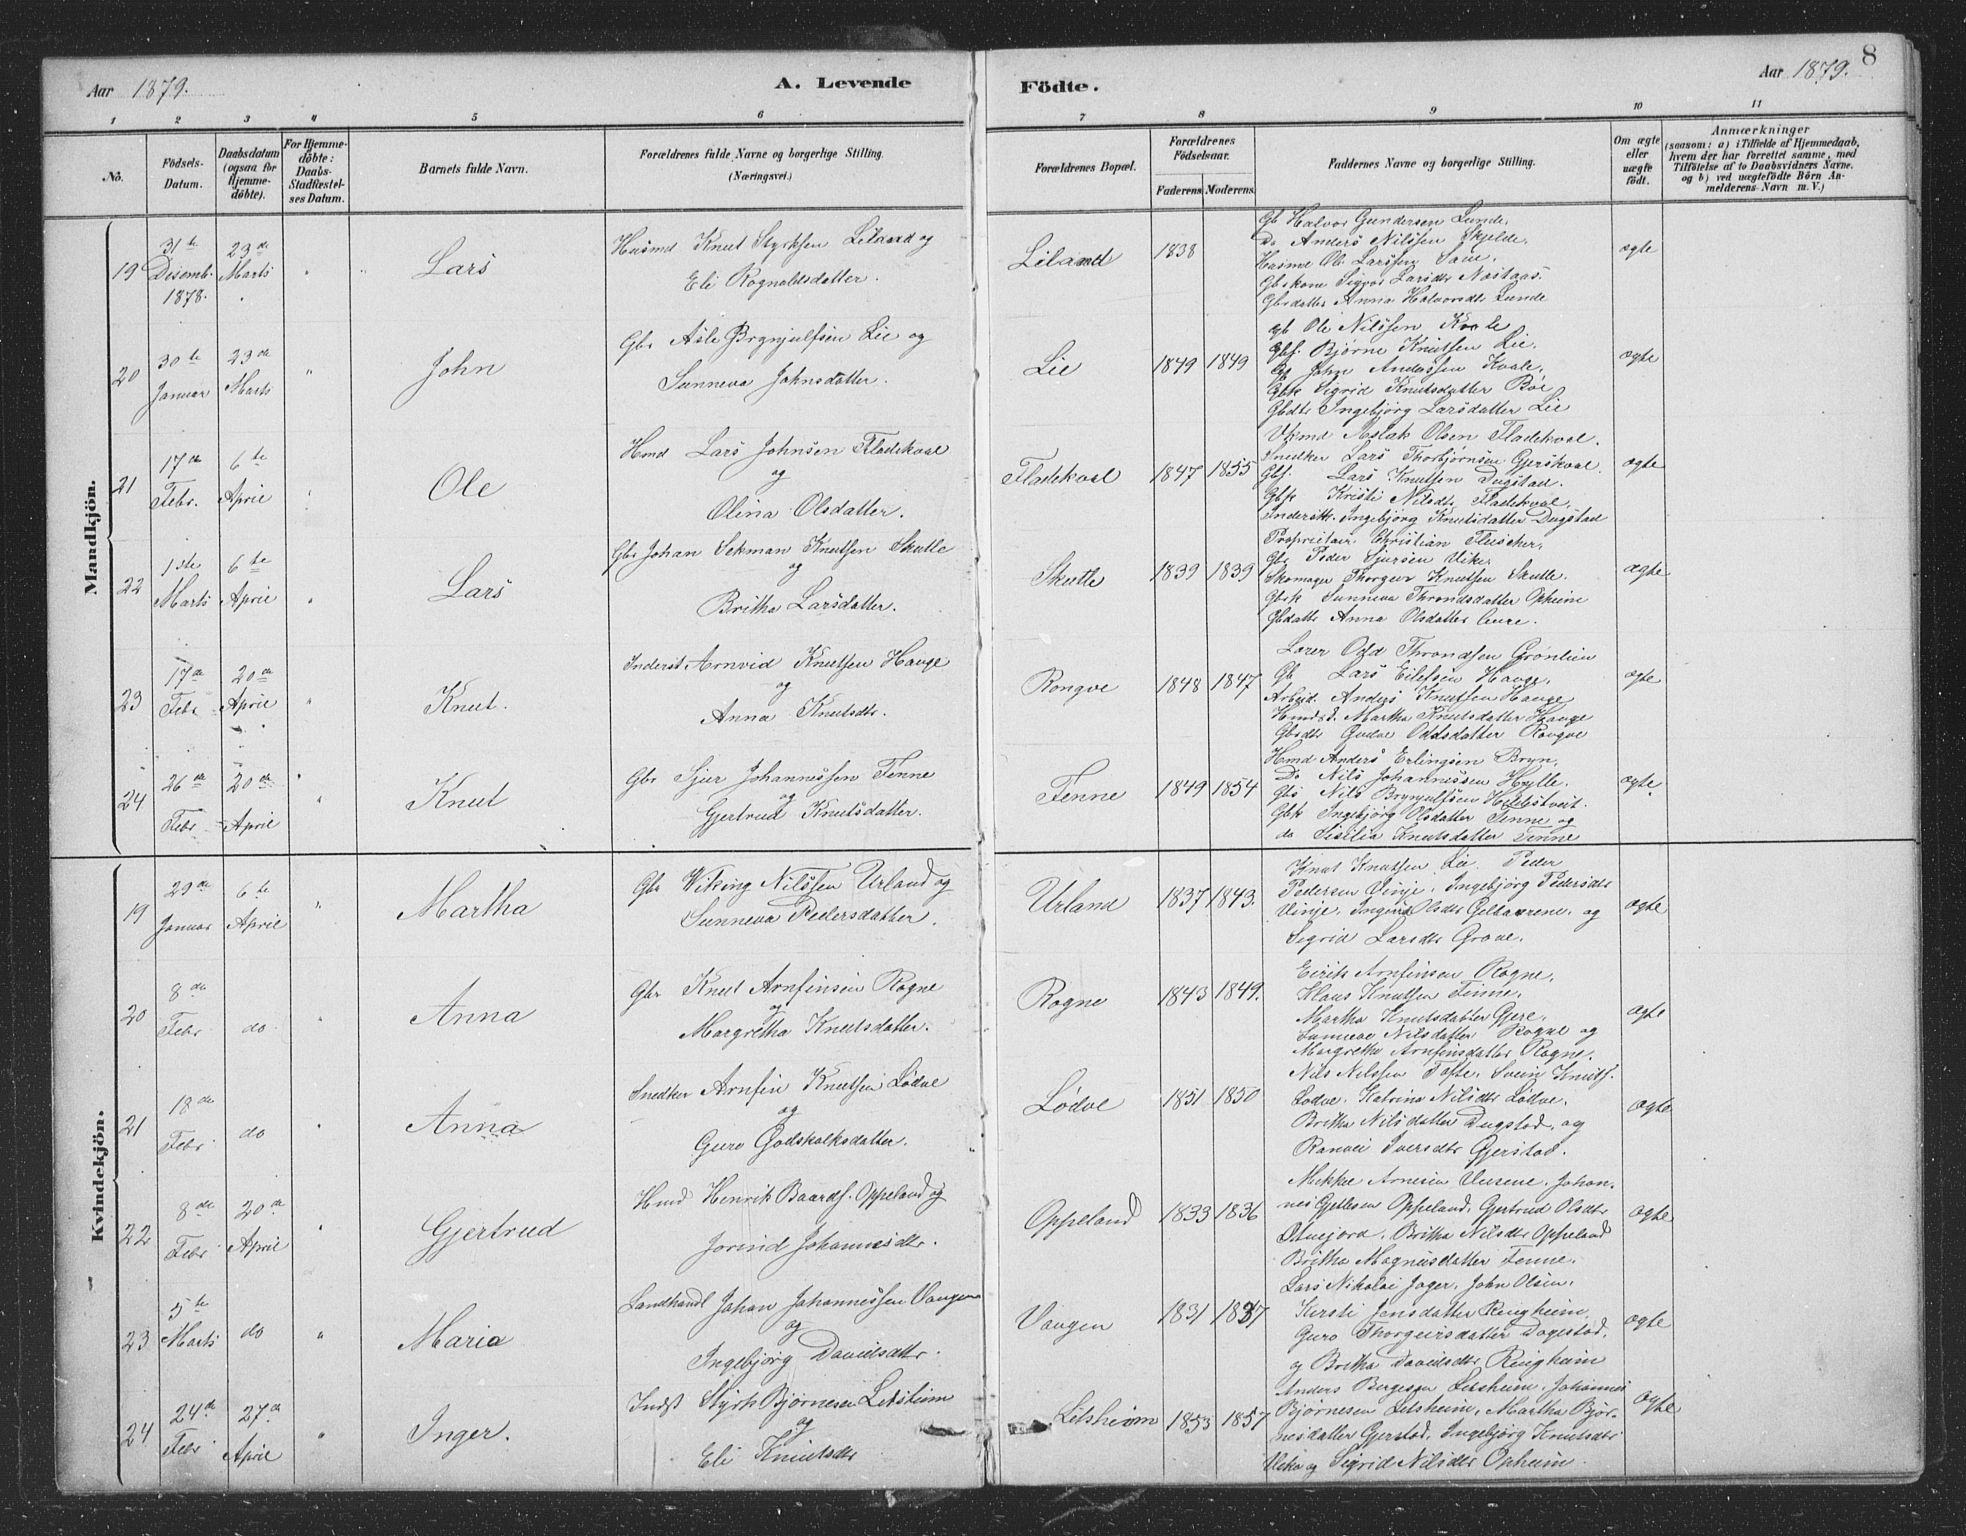 8
Aar 1879.
A. Levende
Födte.
Aar 1879.
1 2 3 4 5 6 7 8 9 10 11
No.
Födsels-Datum.
Daabsdatum (ogsaa for Hjemmedöbte).
For Hjemmedöbte: Daabs-Stadfæstelses Datum.
Barnets fulde Navn.
Forældrenes fulde Navne og borgerlige Stilling. (Næringsvei.)
Forældrenes Bopæl.
Forældrenes Födselsaar.
Faderens. Moderens.
Faddernes Navne og borgerlige Stilling.
Om ægte eller uægte födt.
Anmærkninger
(saasom: a) i Tilfælde af Hjemmedaab, hvem der har forrettet samme, med Tilföielse af to Daabsvidners Navne. og b) ved uægtefödte Börn Anmelderens Navn m. V.)
Mandkjön.
19 31te Desemb. 1878. 23de Marts " Lars
Husmd Knut Styrksen Liland og
Eli Rognaldsdatter.
Liland 1838
Gb Halvor Gundersen Lunde.
Do Anders Nilssen Skjelde.
Husmd Ole Larssen
Gbskone Sigvor Larsdtr
Gbsdatter Anna Halvorsdtr Lunde
ægte
20 30te Januar 23de Marts " John
Gbr Asle Brynjulfsen Lie og
Sunneva Johnsdatter.
Lie 1849 1849
gb Ole Nilssen
Gbf. Bjørne Knutsen Lie.
John Anderssen Kvale.
Gbk Sigrid Knutsdatter Böe
Gbdtr Ingebjörg Larsdatter Lie
ægte
21 17de Febr. 6te April Ole
Hmd Lars Johnsen Fladekval
og
Olina Olsdatter.
Fladekval 1847 1855
Aslak Olsen Fladekval.
Snedker Lars Thorbjørnsen Gjerskval.
Gbf Lars Knutsen Dugstad.
Gbk Kristi Nilsdtr Fladekval
Ingebjörg Knutsdatter Dugstad
ægte
22 1ste Marts 6te April " Lars
Gbr Johan Sekman Knutsen Skutle
og
Britha Larsdatter.
Skutle 1839 1839
Proprietair Christian Fleischer.
Gbr Peder Sjursen Vike.
Skomager Thorgeir Knutsen Skutle.
Gbrk Sunneva Throndsdatter Opheim
Gbdattr Anna Olsdatter
ægte
23 17de Febr 20de April " Knut.
Inderst Arnvid Knutsen Hauge
og
Anna Knutsdtr.
Rongve 1848 1847
Lærer Odd Throndsen Grönlien
Gb Lars Eilefsen Hauge.
Arbeid. Anders Knutsen Hauge
Martha Knutsdatter Hauge
Gbsdtr Oddsdatter Rongve
ægte
24 26de Febr 20de April " Knut
Gbr Sjur Johannessen Tenne
og
Gjertrud Knutsdatter.
Tenne 1849 1854
Hmd Anders Erlingsen Bryn.
Do Nils Johannessen Hylle.
Nils Brynjulfsen
Gbk Ingebjörg Olsdatter Tenne og
do Sisilia Knutsdatter Tenne
ægte.
Kvindekjön.
19 29de Januar 6te April " Martha
Gbr Viking Nilssen Urland og
Sunneva Pedersdatter.
Urland 1837 1843.
Knut Knutsen Lie. Peder
Pedersen Vinje. Ingebjörg Pedersdtr
Vinje. Olsdtr og
Sigrid Larsdtr Grove.
ægte
20 8de Febr do Anna
Gbr Knut Arnfinsen Rogne
og
Margretha Knutsdatter.
Rogne 1843 1849.
Eirik Arnfinsen Rogne.
Klaus Knutsen Finne.
Martha Knutsdatter Gjere.
Sunneva Nilsdatter Rogne og
Margretha Arnfinsdatter Rogne.
ægte
21 18de Febr do Anna
Snedker Arnfin Knutsen Lödve
og
Guro Godskalksdatter.
Lödve 1851 1850
Nils Nilssen Tofte. Svein Knuts.
Lödve. Katrina Nilsdtr Lödve.
Britha Nilsdatter Dugstad, og
Ranvei Iversdtr Gjerstad.
ægte
22 8de Febr 20de April Gjertrud
Hmd Henrik Baards. Oppeland og
Jorind Johannesdtr.
Oppeland 1833 1836
Mikkel Arnesen Johannes
Oppeland. Gjertrud Olsdtr
Britha Nilsdtr Oppeland
Britha Magnusdatter Tenne.
ægte
23 5te Marts do " Maria
Landhandl Johan Johannessen Vangen
og
Ingebjörg Davidsdtr.
Vangen 1831 1837
Lars Nikolai Jager. John Olsen.
Kirsti Jonsdatter Ringheim
Guro Thorgeirsdatter Dogestad.
og Britha Davidsdtr Ringheim
ægte
24 24de Febr 27de April " Inger.
Indst Styrk Bjørnesen Litsheim
og
Eli Knutsdtr
Litsheim 1853 1857
Anders Bergesen Litsheim. Johannes
Bjørnesen Litsheim. Martha Bjørnesdatter
Gjerstad. Ingebjörg Knutsdtr
og Sigrid Nilsdtr Opheim.
ægte